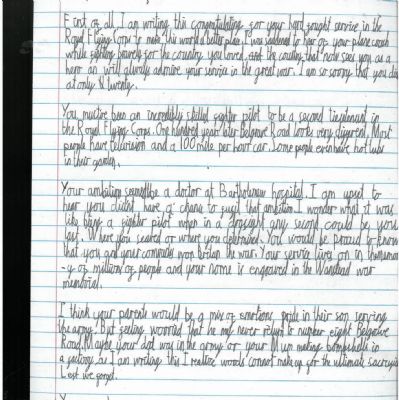 First of all I am writing this congratulating for your hard fought service in the
Royal Flying Corps to make this world a better place. I was saddened to hear of your plane crash
while fighting bravely for the country you loved, and the country that now sees you as a
hero an will always admire your service in the great war. I am so sorry that you die
at only twenty.
You must've been an incredibly skilled fighter pilot to be a second lieutenant in
the Royal Flying Corps. One hundred years later Belgrave Road looks very different. Most
people have television and a 100 mile per hour car. Some people even have hot tubs
in their garden.
Your ambition seemed be a doctor at Bartholomew hospital. I am upset to
hear you didnt have a chance to fulfil that ambition. I wonder what it was
like being a fighter pilot when in a dogfight any second could be your
last. Where you scared or where you determined. You would be proud to know
that you and your comrades won britain the war. Your service lives on in the memor
-y of millions of people and your name is engraved in the Wanstead war
memorial.
I think your parents would be a mix of emotions, pride in their son serving
the army. But feeling worried that he may never return to number eight Belgrave
Road. Maybe your dad was in the army or your Mum making bombshells in
a factory. As I am writing this I realise words cannot make up for the ultimate sacrifice
Lest we forget.